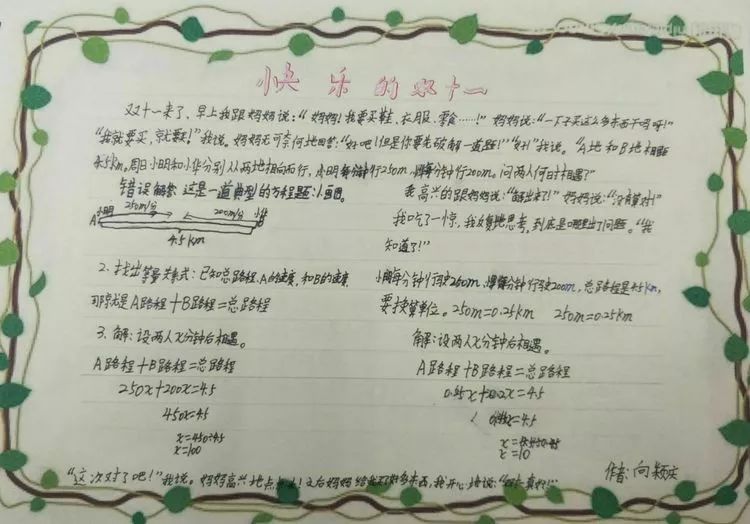 快乐的双十一
双十一来了，早上我跟妈妈说：“妈妈！我要买鞋、衣服、零食……！”妈妈说：“一下子买这么多东西干吗呀！”
“我就要买，京就要！”我说。妈妈无可奈何地回答：“好吧！但是你要先破解一道题！”“好！”我说。“A地和B地相距
4.5km。周日小明和小华分别从两地相向而行，小明每分钟行250m，小华每分钟行200m。问两人何时相遇？”
错误解答 这是一道典型的方程题：小画图。
小明 250m/分 200m/分 小华
A
4.5km
2.找出等量关系式：已知总路程、A的速度，和B的速度
可得就是A路程+B路程=总路程
3.解：设两人x分钟后相遇。
A路程+B路程=总路程
250x+200x=4.5
450x=4.5
x=450÷4.5
x=100
我高兴的跟妈妈说：“解出来了！”妈妈说：“没有算对！”
我吃了一惊，我反复地思考，到底是哪里出了问题。“我
知道了！”
小明每分钟行驶250m，小华每分钟行驶200m，总路程是4.5km，
要换算单位。250m=0.25km 250m=0.25km
解：设两人x分钟后相遇。
A路程+B路程=总路程
0.25x+0.2x=4.5
0.45x=4.5
x=10
“这次对了吧！”我说。妈妈高兴地点之后妈妈给我买了好多东西，我开心地说：
作者：向颖庆